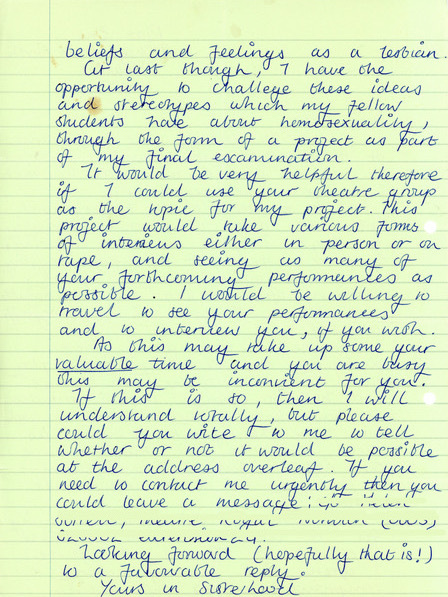 beliefs and feelings as a lesbian.
At last though, I have the
opportunity to challege these ideas
and stereotypes which my fellow
students have about homosexuality,
through the form of a project as part
of my final excamination.
It would be very helpful therefore
if I could use your theatre group
as the topic for my project. This
project would take various forms
of interveiws either in person or on
tape, and seeing as many of
your forthcoming performances as
possible. I would be willing to
travel to see your performances
and to interview you, if you wish.
As this may take up some your
valuable time and you are busy
this may be inconvient for you.
If this is so, then I will
understand totally, but please
could you wite to me to tell
whether or not it would be possible
at the address overleaf. If you
need to contact me urgently then you
could leave a message:
Looking forward (hopefully that is!)
to a favourable reply.
Yours in Sisterhood